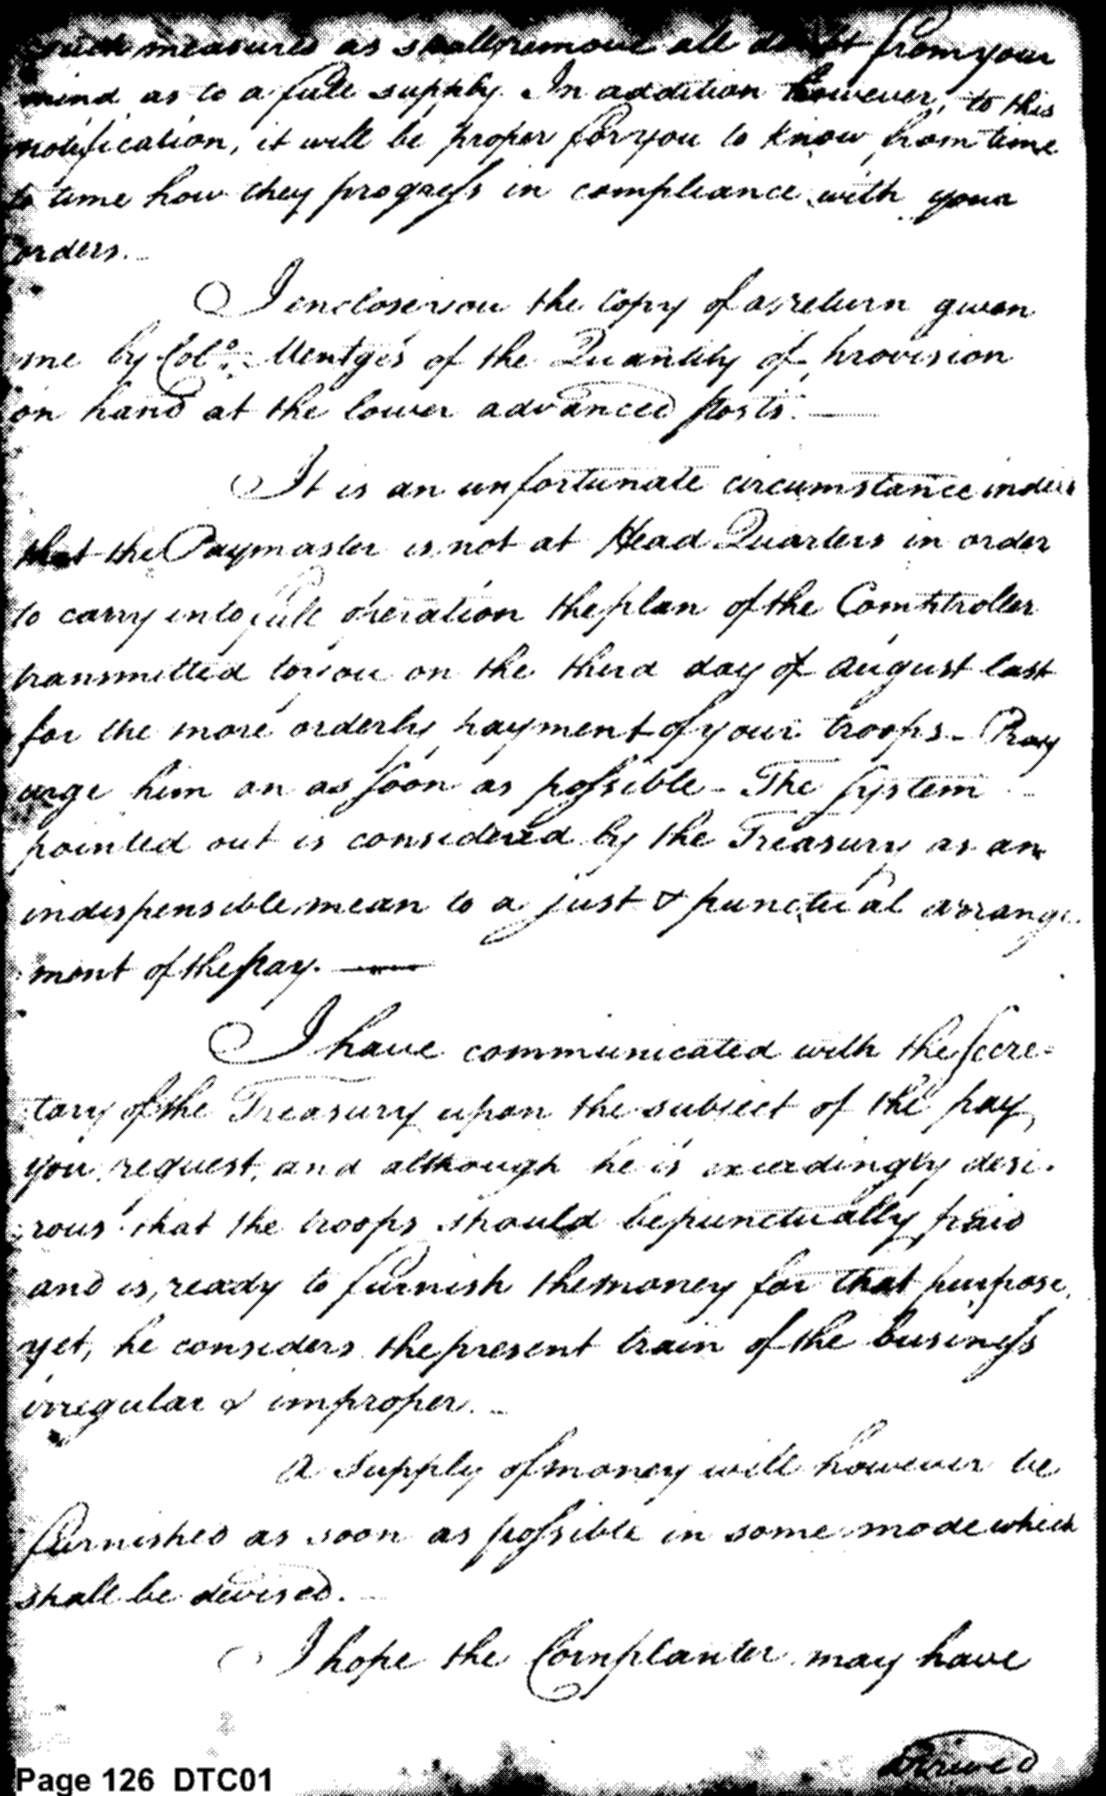 such measures as shall remove all doubt from your
mind as to a full supply. In addition however, to this
notification, it will be proper for you to know from time
to time how they progress in compliance with your
orders.
I enclose you the Copy of a return given
me by Colo. Mentges of the Quantity of provision
on hand at the lower advanced posts.
It is an unfortunate circumstance indeed
that the Paymaster is not at Head Quarters in order
to carry into full operation the plan of the Comptroller
transmitted to you on the third day of august last
for the more orderly payment of your troops - Pray
urge him on as soon as possible - The System
pointed out is considered by the Treasury as an
indispensible mean to a just & punctual arrange
ment of the pay.
I have communicated with the Secre=
tary of the Treasury upon the subject of the pay
you request, and although he is exceedingly desi-
rous that the troops should be punctually paid
and is, ready to furnish the money for that purpose,
yet, he considers the present train of the business
irregular & improper.
A supply of money will however be
furnished as soon as possible in some mode which
shall be devised.
I hope the Cornplanter may have
arrived
Page 126 DTC01